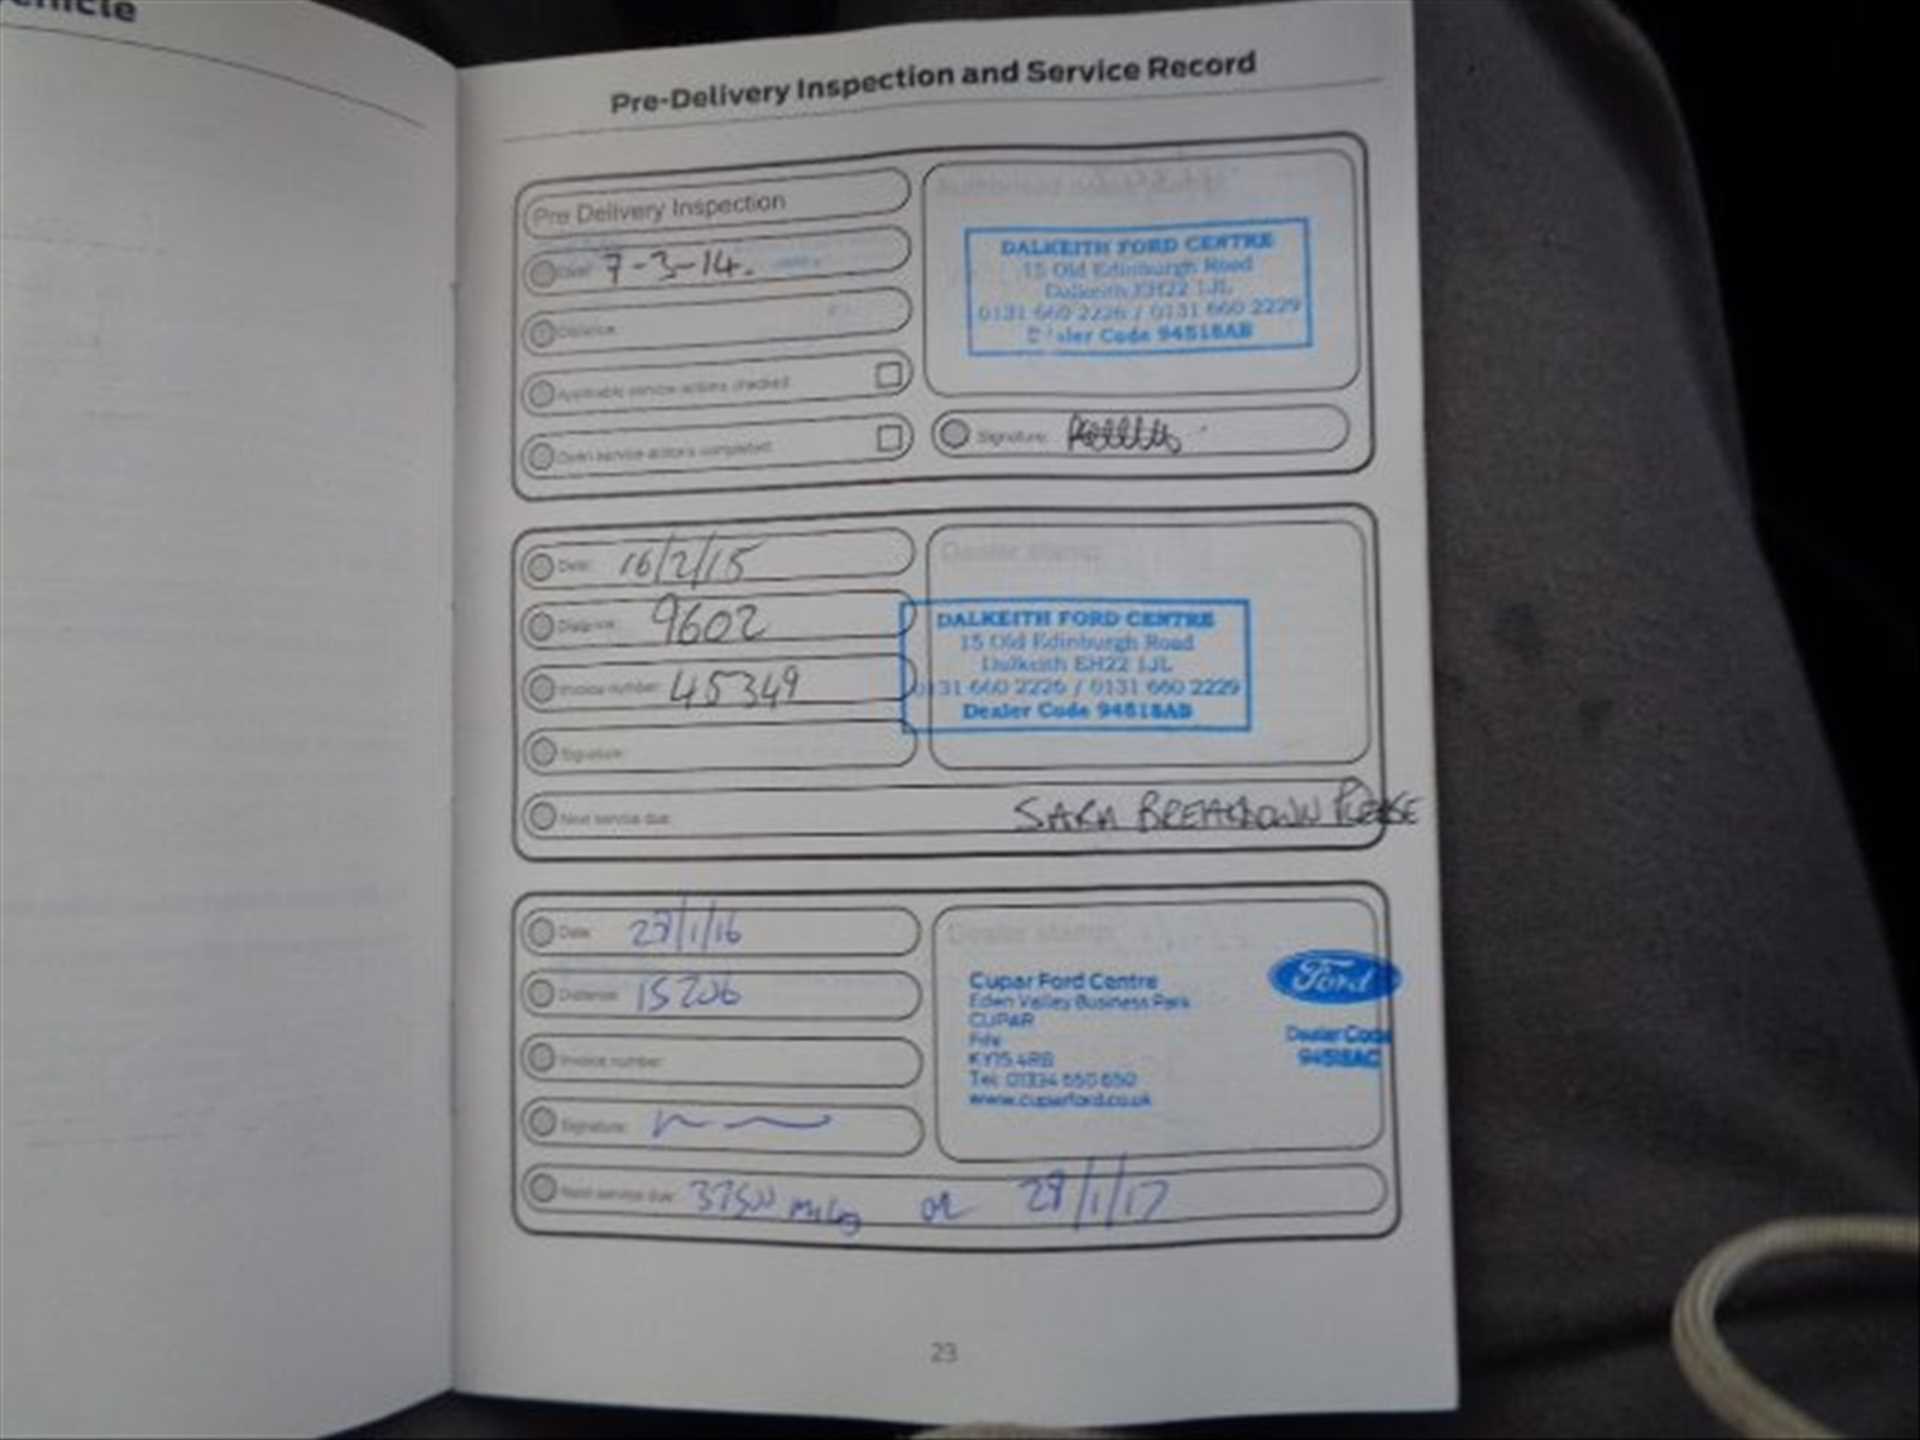 Pre-Delivery Inspection and Service Record
Pre Delivery Inspection
Date: 7-3-14.
Distance:
Applicable service actions checked
Open service actions completed
DALKEITH FORD CENTRE
15 Old Edinburgh Road
Dalkeith EH22 1JL
0131 660 2226 / 0131 660 2229
Dealer Code 94518AB
Signature:
Date: 16/2/15
Distance: 9602
Invoice number: 45349
Signature:
Dealer stamp:
DALKEITH FORD CENTRE
15 Old Edinburgh Road
Dalkeith EH22 1JL
0131 660 2226 / 0131 660 2229
Dealer Code 94518AB
Next service due: BREAKDOWN PLEASE
Date: /1/16
Distance: 15206
Invoice number:
Signature:
Dealer stamp:
Cupar Ford Centre
Eden Valley Business Park
CUPAR
Fife
KY15 4RB
Tel: 01334 650 650
www.cuparford.co.uk
Ford
Dealer Code
94518AC
Next service due: 37500 miles or 28/1/17
23